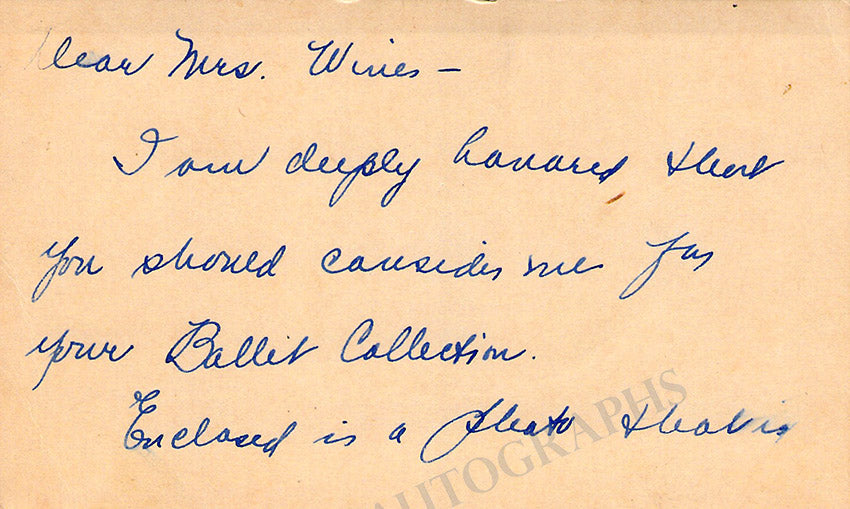 Dear Mrs. Wines –
I am deeply honored that
you should consider me for
your Ballet Collection.
Enclosed is a photo that is
AUTOGRAPHS